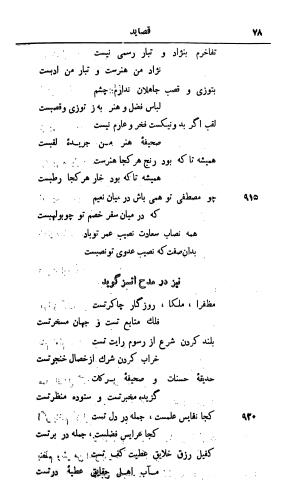 ۷۸
قصاید
تفاخرم بنژاد و تبار رسمی نیست
نژاد من هنرست و تبار من ادبست
بتوزی و قصب جاهلان ندارم چشم
لباس فضل و هنر به ز توزی و قصبست
لقب اگر بد و نیکست فخر و عارم نیست
صحیفهٔ هنر من جریدهٔ لقبست
همیشه تا که بود رنج هرکجا هنرست
همیشه تا که بود خار هرکجا رطبست
۹۱۵
چو مصطفی تو همی باش در میان نعیم
که در میان سقر خصم تو چو بولهبست
همه نصاب سعادت نصیب عمر تو باد
بدان صفت که نصیب عدوی تو نصبست
نیز در مدح اتسز گوید
مظفرا ، ملکا ، روزگار چاکر تست
فلك متابع تست و جهان مسخر تست
بلند کردن شرع از رسوم رایت تست
خراب کردن شرك از خصال خنجر تست
حدیقهٔ حسنات و صحیفهٔ برکات
گزیده مخبر تست و ستوده منظر تست
۹۲۰
کجا نفایس علمست ، جمله در دل تست
کجا عرایس فضلست، جمله در بر تست
کفیل رزق خلایق عطیت کف تست
مآب اهل حقایق عطیهٔ در تست